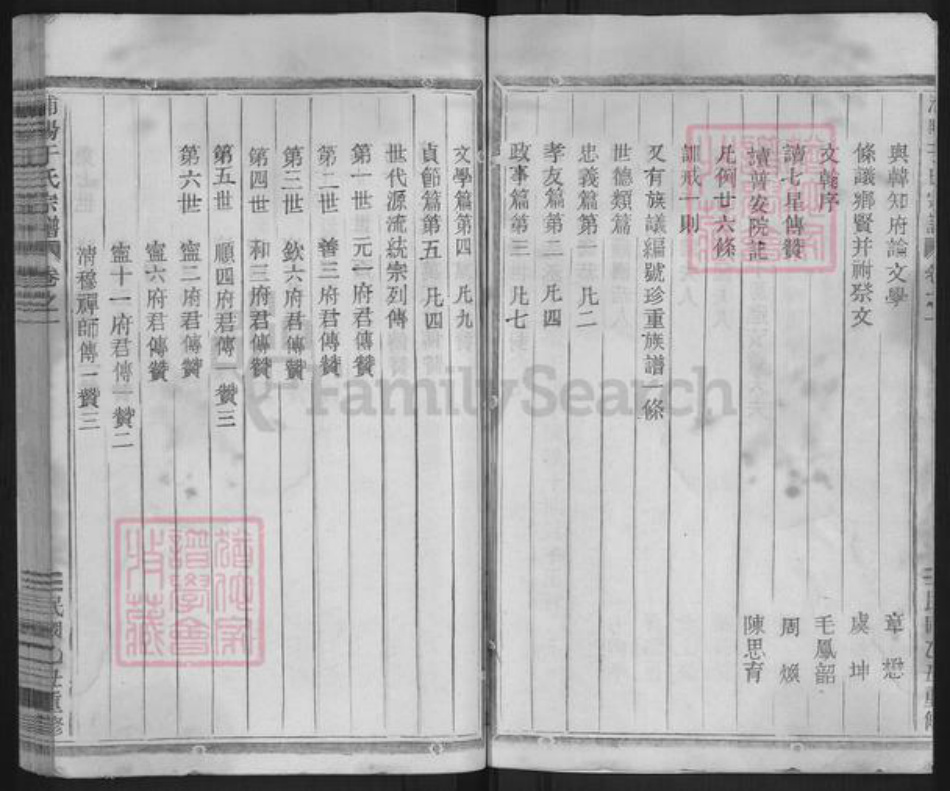 與韓知府論文學 章懋
條議鄉賢并祔祭文 虞坤
文乾序 毛鳳韶
讀七星傳贊 周煥
讀普安院記 陳思育
凡例廿六條
訓戒一則
又有族議編號珍重族譜一條
世德類篇
忠義篇第一 凡二
孝友篇第二 凡四
政事篇第三 凡七
文學篇第四 凡九
貞節篇第五 凡四
世代源流統宗列傳
第一世 元一府君傳贊
第二世 善三府君傳贊
第三世 欽六府君傳贊
第四世 和三府君傳贊
第五世 順四府君傳一贊三
第六世 寍二府君傳贊
寍六府君傳贊
寍十一府君傳一贊二
清穆禪師傳一贊三
于氏宗譜 卷之一 民國乙丑重修
譜學會
收藏
FamilySearch